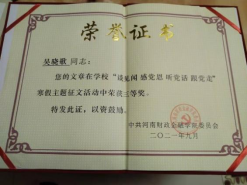 荣誉证书
吴晓歌 同志：
您的文章在学校“谈见闻 感党恩 听党话 跟党走”
寒假主题征文活动中荣获三等奖。
特发此证，以资鼓励。
中共河南财政金融学院委员会
二〇二一年九月